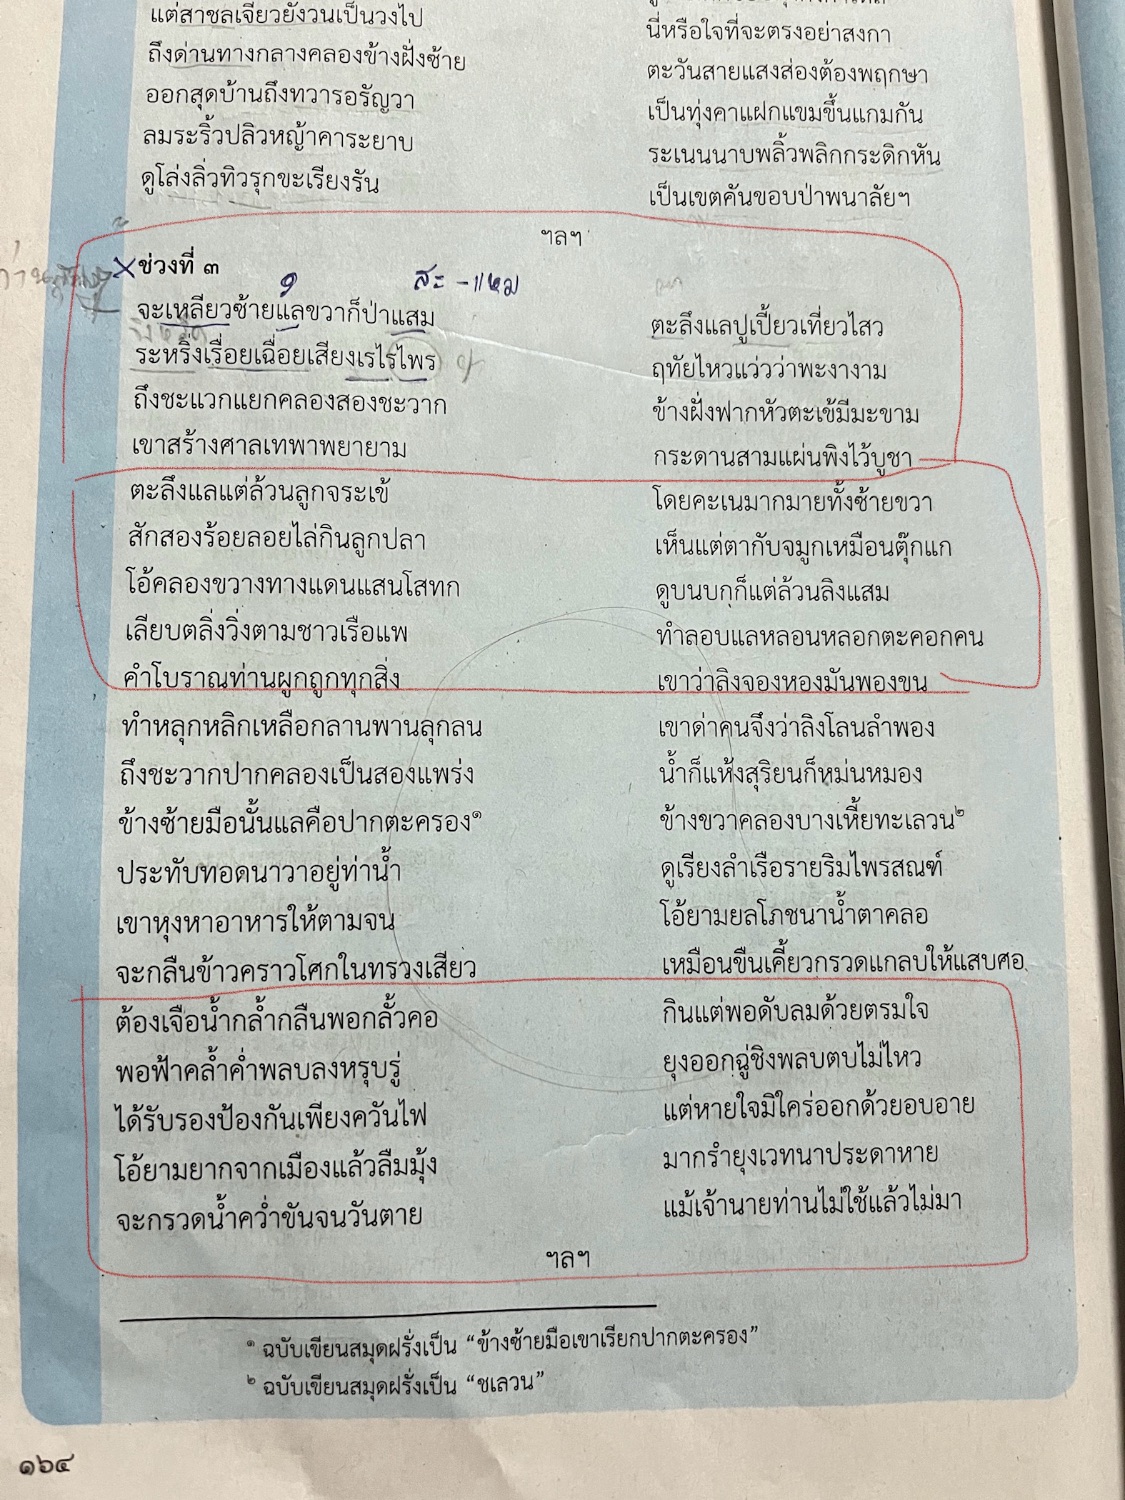 แต่สาชลเจียวยังวนเป็นวงไป
ถึงด่านทางกลางคลองข้างฝั่งซ้าย นี่หรือใจที่จะตรงอย่าสงกา
ออกสุดบ้านถึงทวารอรัญวา ตะวันสายแสงส่องต้องพฤกษา
ลมระริ้วปลิวหญ้าคาระยาบ เป็นทุ่งคาแฝกแขมขึ้นแกมกัน
ดูโล่งลิ่วทิวรุกขะเรียงรัน ระเนนนาบพลิ้วพลิกกระดิกหัน
เป็นเขตคันขอบป่าพนาลัยฯ
ฯลฯ
ช่วงที่ ๓
สะ-แหม
จะเหลียวซ้ายแลขวาก็ป่าแสม ตะลึงแลปูเปี้ยวเที่ยวไสว
ระหริ่งเรื่อยเฉื่อยเสียงเรไรไพร ฤทัยไหวแว่วว่าพะงางาม
ถึงชะแวกแยกคลองสองชะวาก ข้างฝั่งฟากหัวตะเข้มีมะขาม
เขาสร้างศาลเทพาพยายาม กระดานสามแผ่นพิงไว้บูชา
ตะลึงแลแต่ล้วนลูกจระเข้ โดยคะเนมากมายทั้งซ้ายขวา
สักสองร้อยลอยไล่กินลูกปลา เห็นแต่ตากับจมูกเหมือนตุ๊กแก
โอ้คลองขวางทางแดนแสนโสทก ดูบนบกก็แต่ล้วนลิงแสม
เลียบตลิ่งวิ่งตามชาวเรือแพ ทำลอบแลหลอนหลอกตะคอกคน
คำโบราณท่านผูกถูกทุกสิ่ง เขาว่าลิงจองหองมันพองขน
ทำหลุกหลิกเหลือกลานพานลุกลน เขาด่าคนจึงว่าลิงโลนลำพอง
ถึงชะวากปากคลองเป็นสองแพร่ง น้ำก็แห้งสุริยนก็หม่นหมอง
ข้างซ้ายมือนั้นแลคือปากตะครอง๑ ข้างขวาคลองบางเหี้ยทะเลวน๒
ประทับทอดนาวาอยู่ท่าน้ำ ดูเรียงลำเรือรายริมไพรสณฑ์
เขาหุงหาอาหารให้ตามจน โอ้ยามยลโภชนาน้ำตาคลอ
จะกลืนข้าวคราวโศกในทรวงเสียว เหมือนขืนเคี้ยวกรวดแกลบให้แสบศอ
ต้องเจือน้ำกล้ำกลืนพอกลั้วคอ กินแต่พอดับลมด้วยตรมใจ
พอฟ้าคล้ำค่ำพลบลงหรุบรู่ ยุงออกฉู่ชิงพลบตบไม่ไหว
ได้รับรองป้องกันเพียงควันไฟ แต่หายใจมิใคร่ออกด้วยอบอาย
โอ้ยามยากจากเมืองแล้วลืมมุ้ง มากรำยุงเวทนาประดาหาย
จะกรวดน้ำคว่ำขันจนวันตาย แม้เจ้านายท่านไม่ใช้แล้วไม่มา
ฯลฯ
๑ ฉบับเขียนสมุดฝรั่งเป็น “ข้างซ้ายมือเขาเรียกปากตะครอง”
๒ ฉบับเขียนสมุดฝรั่งเป็น “ชเลวน”
๑๖๔